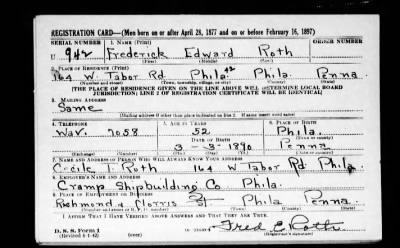 REGISTRATION CARD—(Men born on or after April 28, 1877 and on or before February 16, 1897)
SERIAL NUMBER 1. NAME (Print) ORDER NUMBER
U 942 Frederick Edward Roth
(First) (Middle) (Last)
2. PLACE OF RESIDENCE (Print)
164 W. Tabor Rd. Phila. Phila. Penna
(Number and street) (Town, township, village, or city) (County) (State)
[THE PLACE OF RESIDENCE GIVEN ON THE LINE ABOVE WILL DETERMINE LOCAL BOARD
JURISDICTION; LINE 2 OF REGISTRATION CERTIFICATE WILL BE IDENTICAL]
3. MAILING ADDRESS
Same
[Mailing address if other than place indicated on line 2. If same insert word same]
4. TELEPHONE 5. AGE IN YEARS 6. PLACE OF BIRTH
Wav. 7058 52 Phila.
DATE OF BIRTH (Town or county)
3 - 3 - 1890 Penna
(Exchange) (Number) (Mo.) (Day) (Yr.) (State or country)
7. NAME AND ADDRESS OF PERSON WHO WILL ALWAYS KNOW YOUR ADDRESS
Cecile T. Roth 164 W Tabor Rd. Phila
8. EMPLOYER'S NAME AND ADDRESS
Cramp Shipbuilding Co Phila.
9. PLACE OF EMPLOYMENT OR BUSINESS
Richmond & Norris St Phila Penna.
(Number and street or R. F. D. number) (Town) (County) (State)
I AFFIRM THAT I HAVE VERIFIED ABOVE ANSWERS AND THAT THEY ARE TRUE.
D. S. S. Form 1
(Revised 4-1-42) (over) Fred E. Roth
(Registrant's signature)